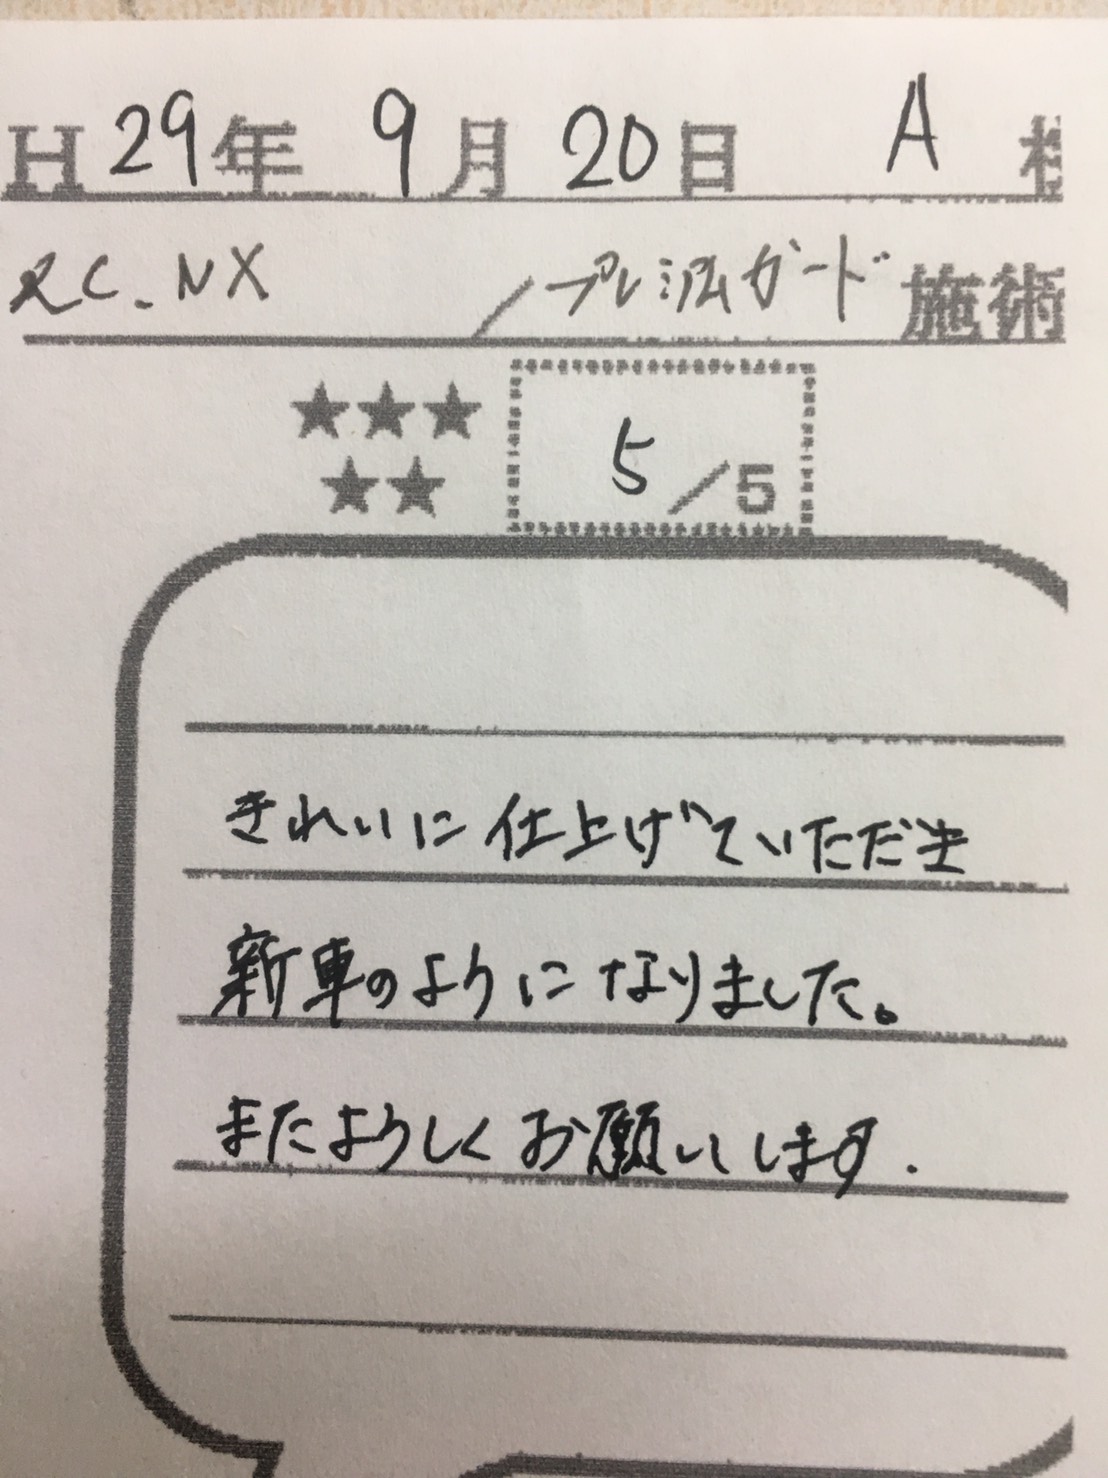 H 29年 9月 20日 A 様
RC.NX / プレミアムガード 施術
★★★
★★
5/5
きれいに仕上げていただき
新車のようになりました。
またよろしくお願いします.